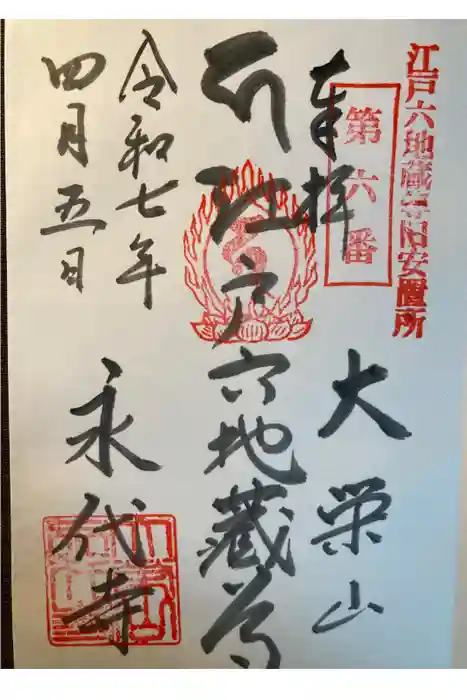 江戸六地蔵尊旧安置所
第六番
奉拝
大栄山
江戸六地蔵尊
令和七年
四月五日
永代寺